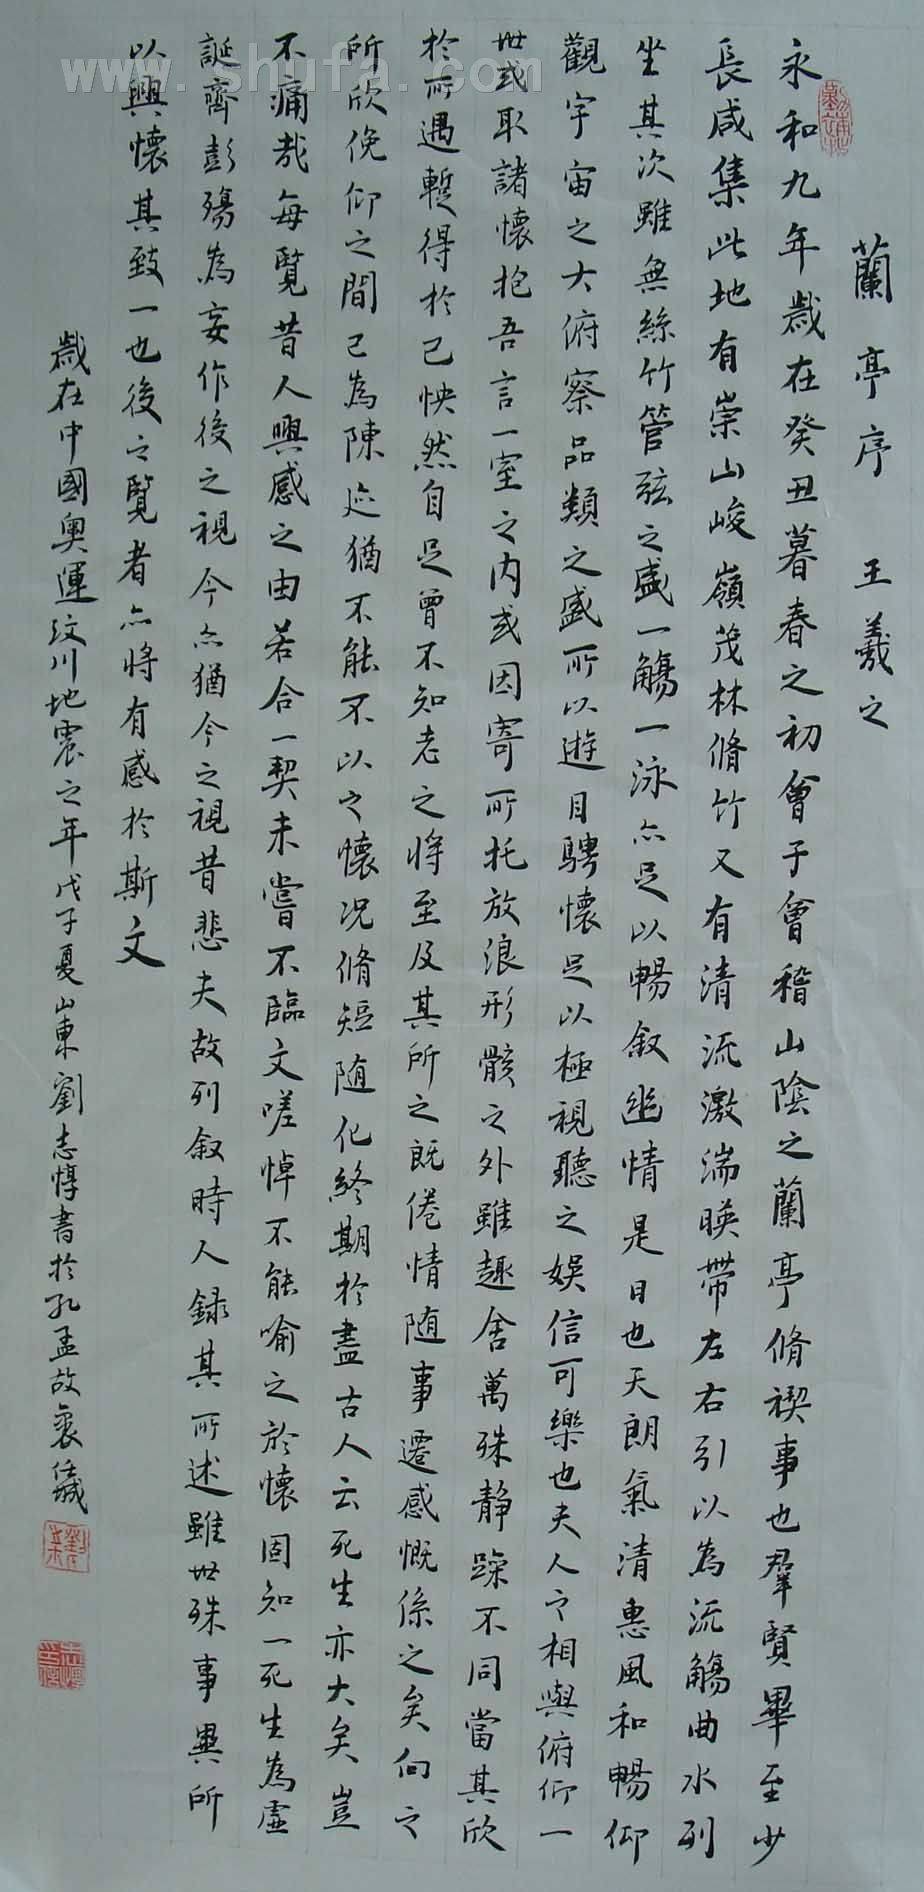 蘭亭序 王羲之
永和九年歲在癸丑暮春之初會于會稽山陰之蘭亭脩禊事也羣賢畢至少
長咸集此地有崇山峻嶺茂林脩竹又有清流激湍暎帶左右引以為流觴曲水列
坐其次雖無絲竹管弦之盛一觴一泳亦足以暢叙幽情是日也天朗氣清惠風和暢仰
觀宇宙之大俯察品類之盛所以遊目騁懷足以極視聽之娛信可樂也夫人之相與俯仰一
世或取諸懷抱吾言一室之内或因寄所托放浪形骸之外雖趣舍萬殊静躁不同當其欣
於所遇蹔得於己怏然自足曾不知老之將至及其所之既倦情随事遷感慨係之矣向之
所欣俛仰之間已為陳迹猶不能不以之懷况脩短随化終期於盡古人云死生亦大矣豈
不痛哉每覽昔人興感之由若合一契未嘗不臨文嗟悼不能喻之於懷固知一死生為虚
誕齊彭殤為妄作後之視今亦猶今之視昔悲夫故列叙時人録其所述雖世殊事異所
以興懷其致一也後之覽者亦將有感於斯文
歲在中國奥運汶川地震之年戊子夏山東劉志惇書於孔孟故裏
www.shufa.com